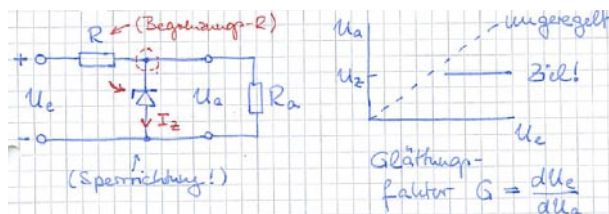 R (Begrenzungs-R)
+
Ue
Iz
Ua
Ra
-
(Sperrrichtung!)
Ua
ungeregelt
Uz
Ziel!
Ue
Glättungs-
faktor G = dUe
dUa